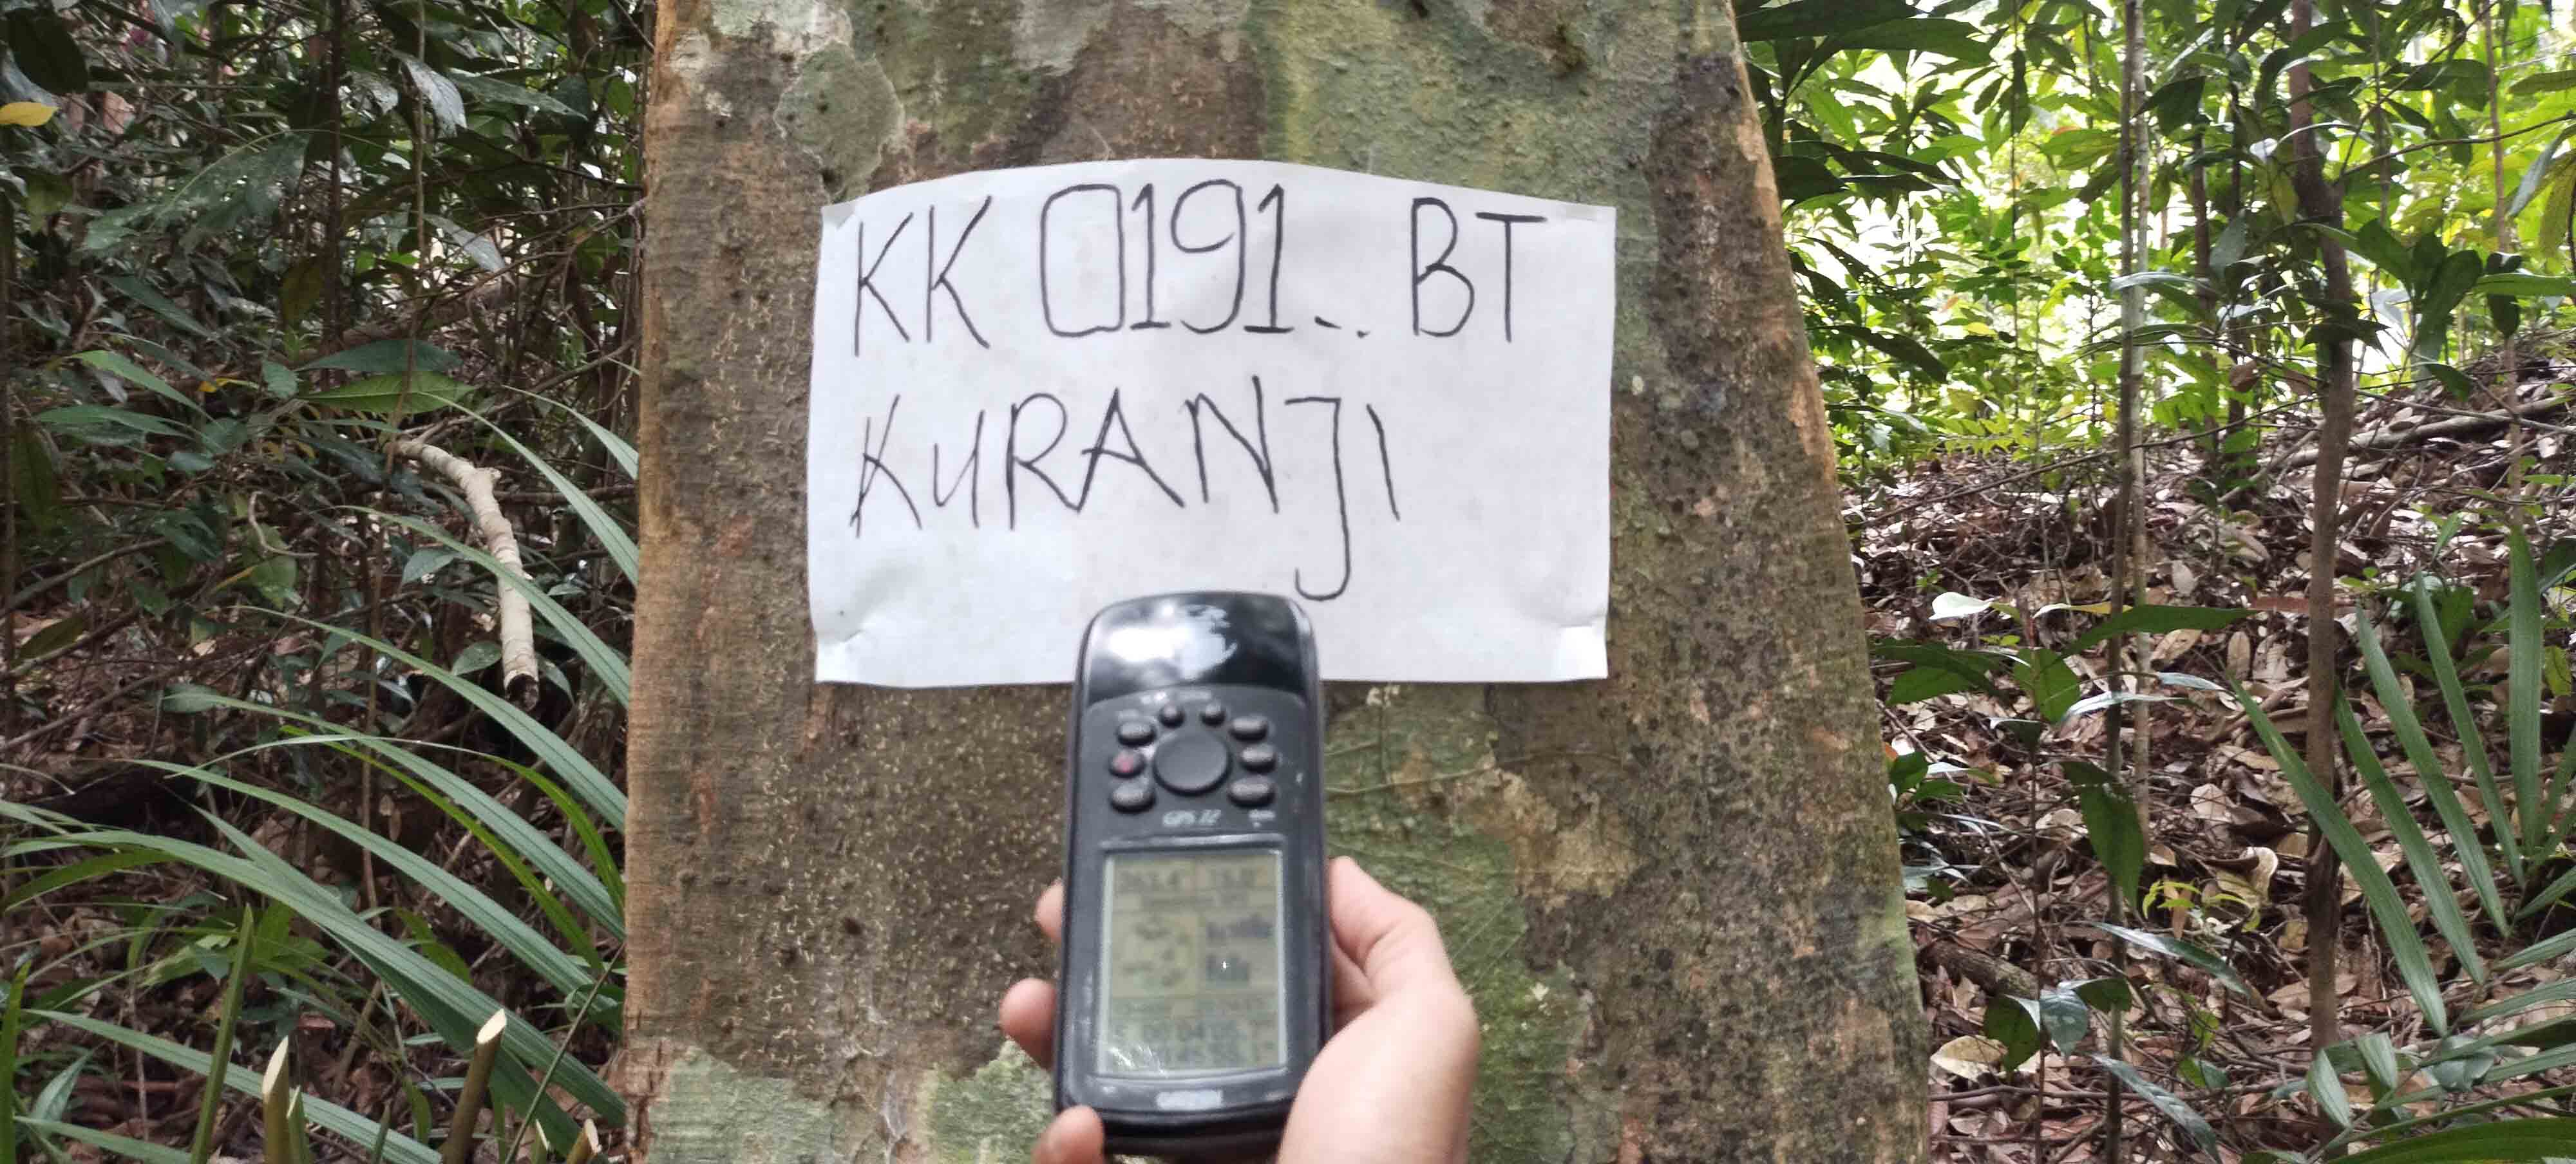 KK 0191... BT
KURANJI
GPS 72
GARMIN